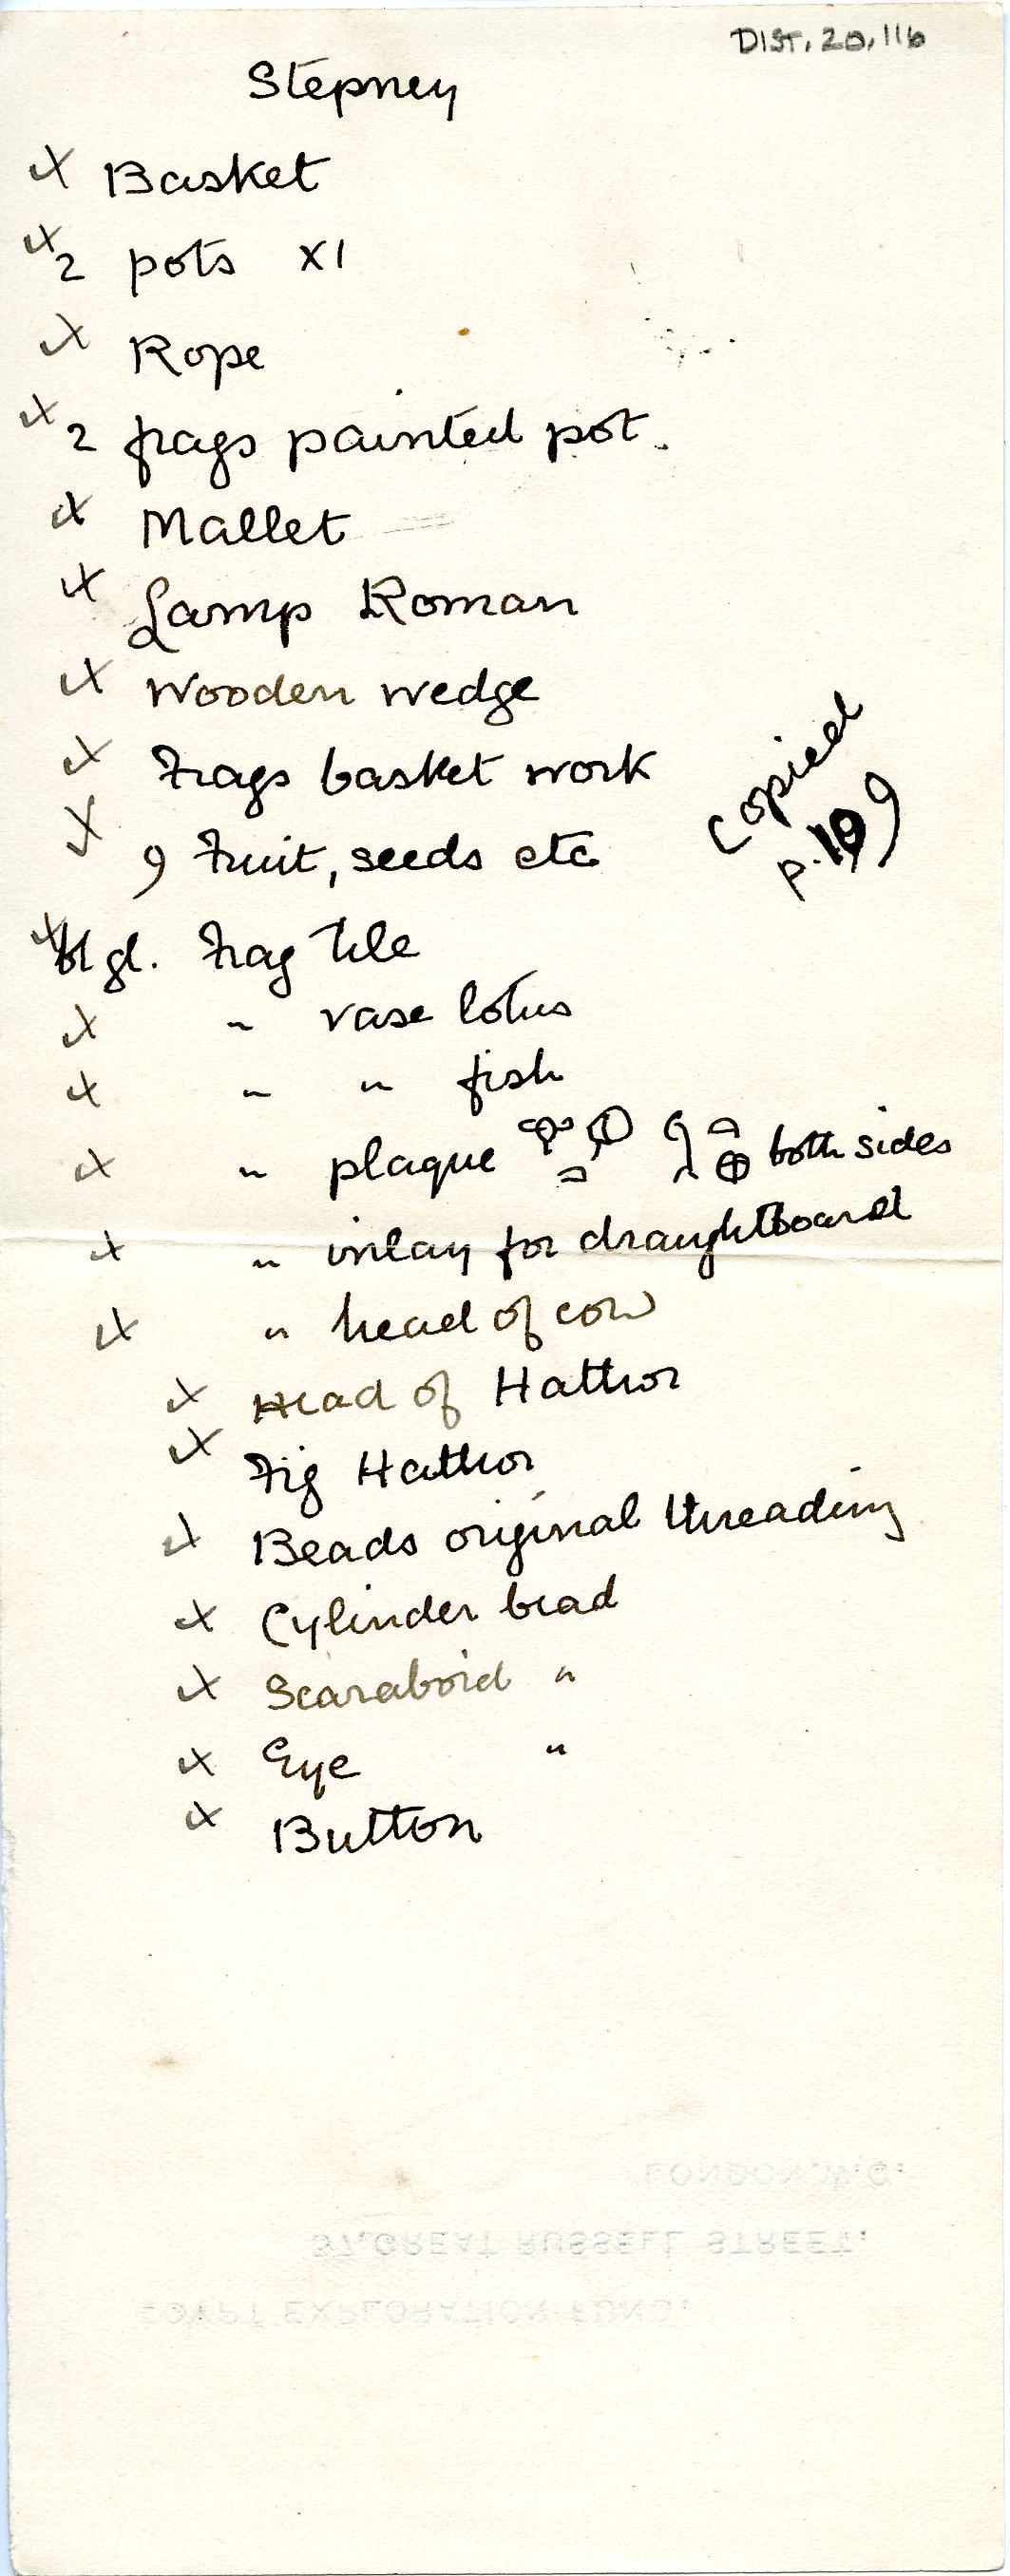 DIST. 20.116
Stepney
Basket
2 pots X1
Rope
2 frags painted pot.
Mallet
Lamp Roman
Wooden wedge
Frags basket work
9 Fruit, seeds etc
Copied
p. 19
Bl gl. Frag tile
" vase lotus
" " fish
" plaque both sides
" inlay for draughtboard
" head of cow
Head of Hathor
Fig Hathor
Beads original threading
Cylinder bead
Scaraboid "
Eye "
Button
LONDON. W.C.
37, GREAT RUSSELL STREET,
EGYPT EXPLORATION FUND,